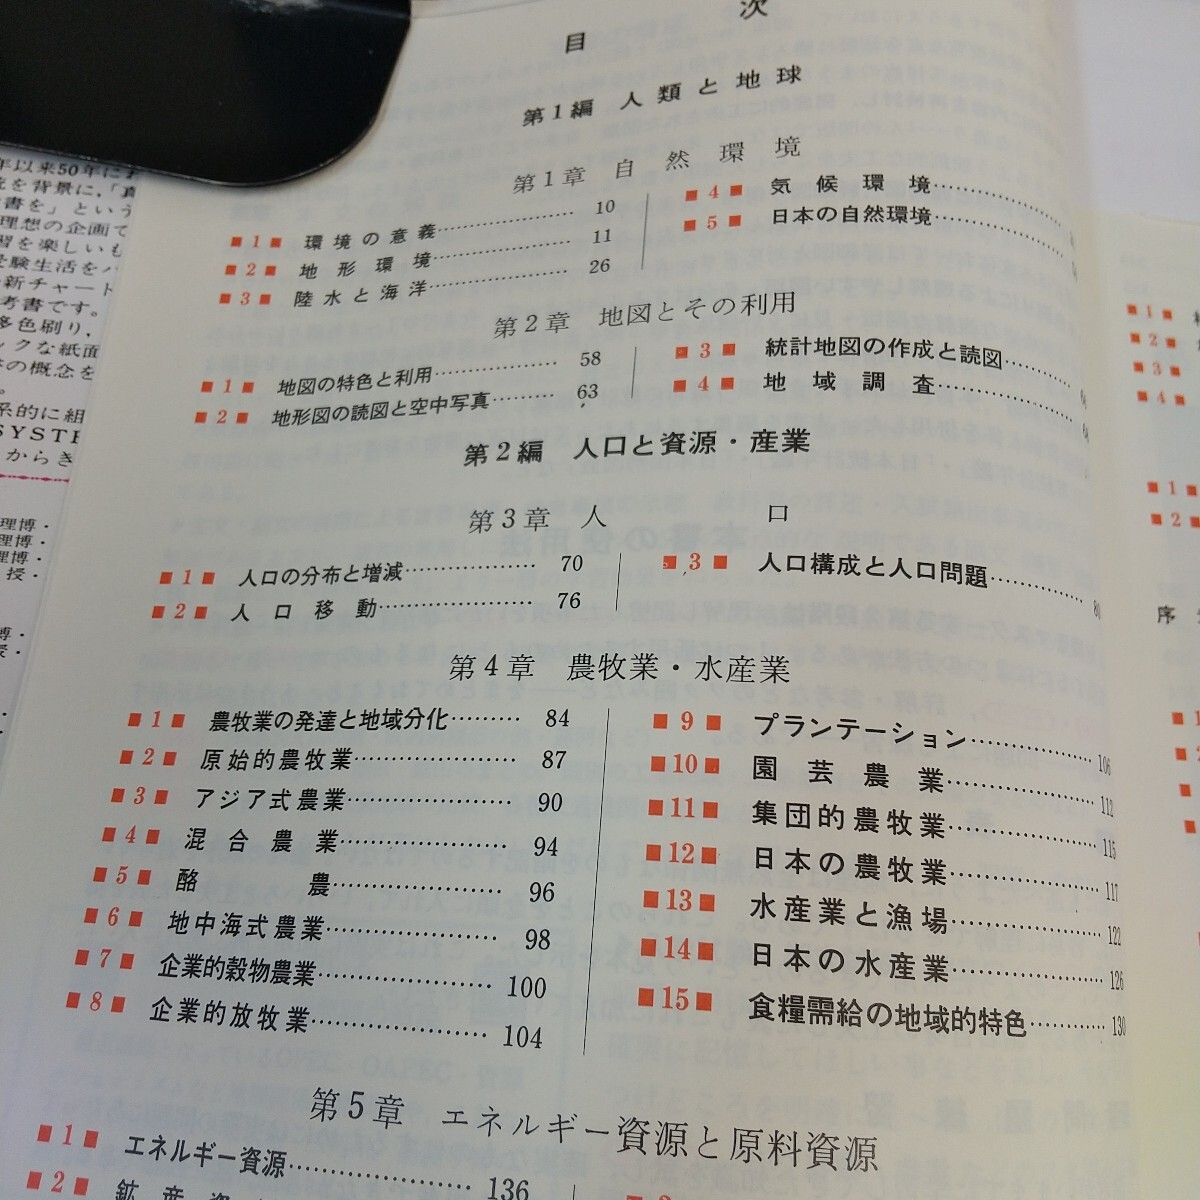 目次
第1編 人類と地球
第1章 自然環境
1 環境の意義 10
2 地形環境 11
3 陸水と海洋 26
4 気候環境
5 日本の自然環境
第2章 地図とその利用
1 地図の特色と利用 58
2 地形図の読図と空中写真 63
3 統計地図の作成と読図
4 地域調査
第2編 人口と資源・産業
第3章 人口
1 人口の分布と増減 70
2 人口移動 76
3 人口構成と人口問題 80
第4章 農牧業・水産業
1 農牧業の発達と地域分化 84
2 原始的農牧業 87
3 アジア式農業 90
4 混合農業 94
5 酪農 96
6 地中海式農業 98
7 企業的穀物農業 100
8 企業的放牧業 104
9 プランテーション 106
10 園芸農業 112
11 集団的農牧業 115
12 日本の農牧業 117
13 水産業と漁場 122
14 日本の水産業 126
15 食糧需給の地域的特色 130
第5章 エネルギー資源と原料資源
1 エネルギー資源 136
2 鉱産資
年以来50年に
を背景に,「真
書を」という
理想の企画で
習を楽しいも
受験生活をバ
新チャート
考書です。
多色刷り,
ックな紙面
の概念を
系的に組
SYSTE
からき
理博・
理博・
理博・
授・
博・
1
2
3
4
1
2
序
1